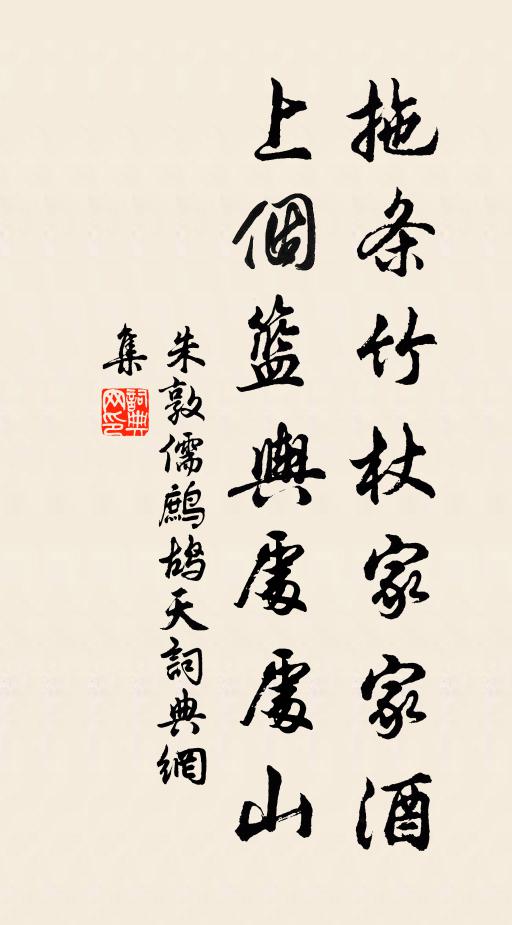 拖条竹杖家家酒
上個籃輿處處山
朱敦儒鷓鴣天詞典網
集
詞典
网印